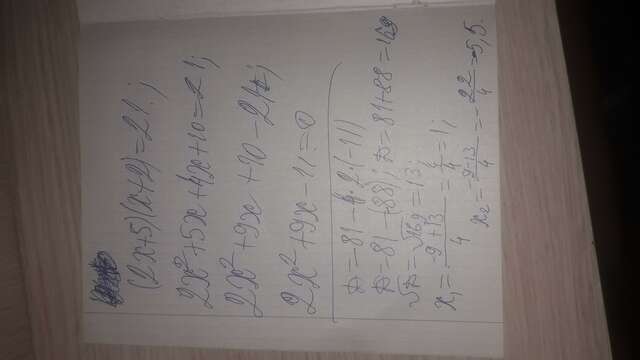 (2x+5)(x+2)=21;
2x²+5x+4x+10=21;
2x²+9x+10-21;
2x²+9x-11=0
D=81-4·2·(-11)
D=81-(88); D=81+88=169
√D=√169=13;
x₁=\frac{-9+13}{4}=\frac{4}{4}=1;
x₂=\frac{-9-13}{4}=-\frac{22}{4}=-5,5.